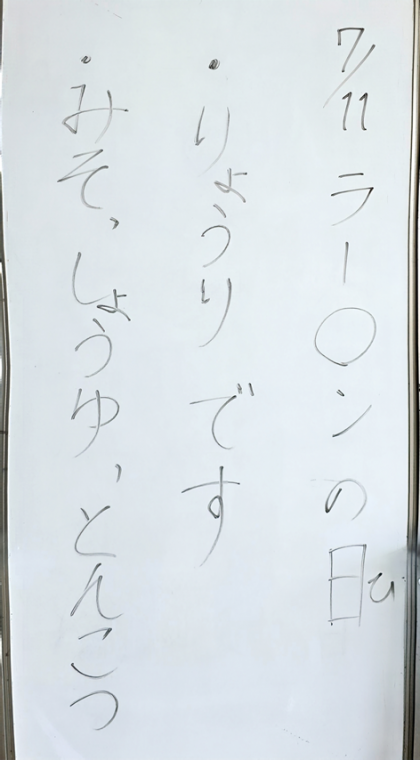 7/11 ラー〇ンの日ひ
・りょうりです
・みそ、しょうゆ、とんこつ